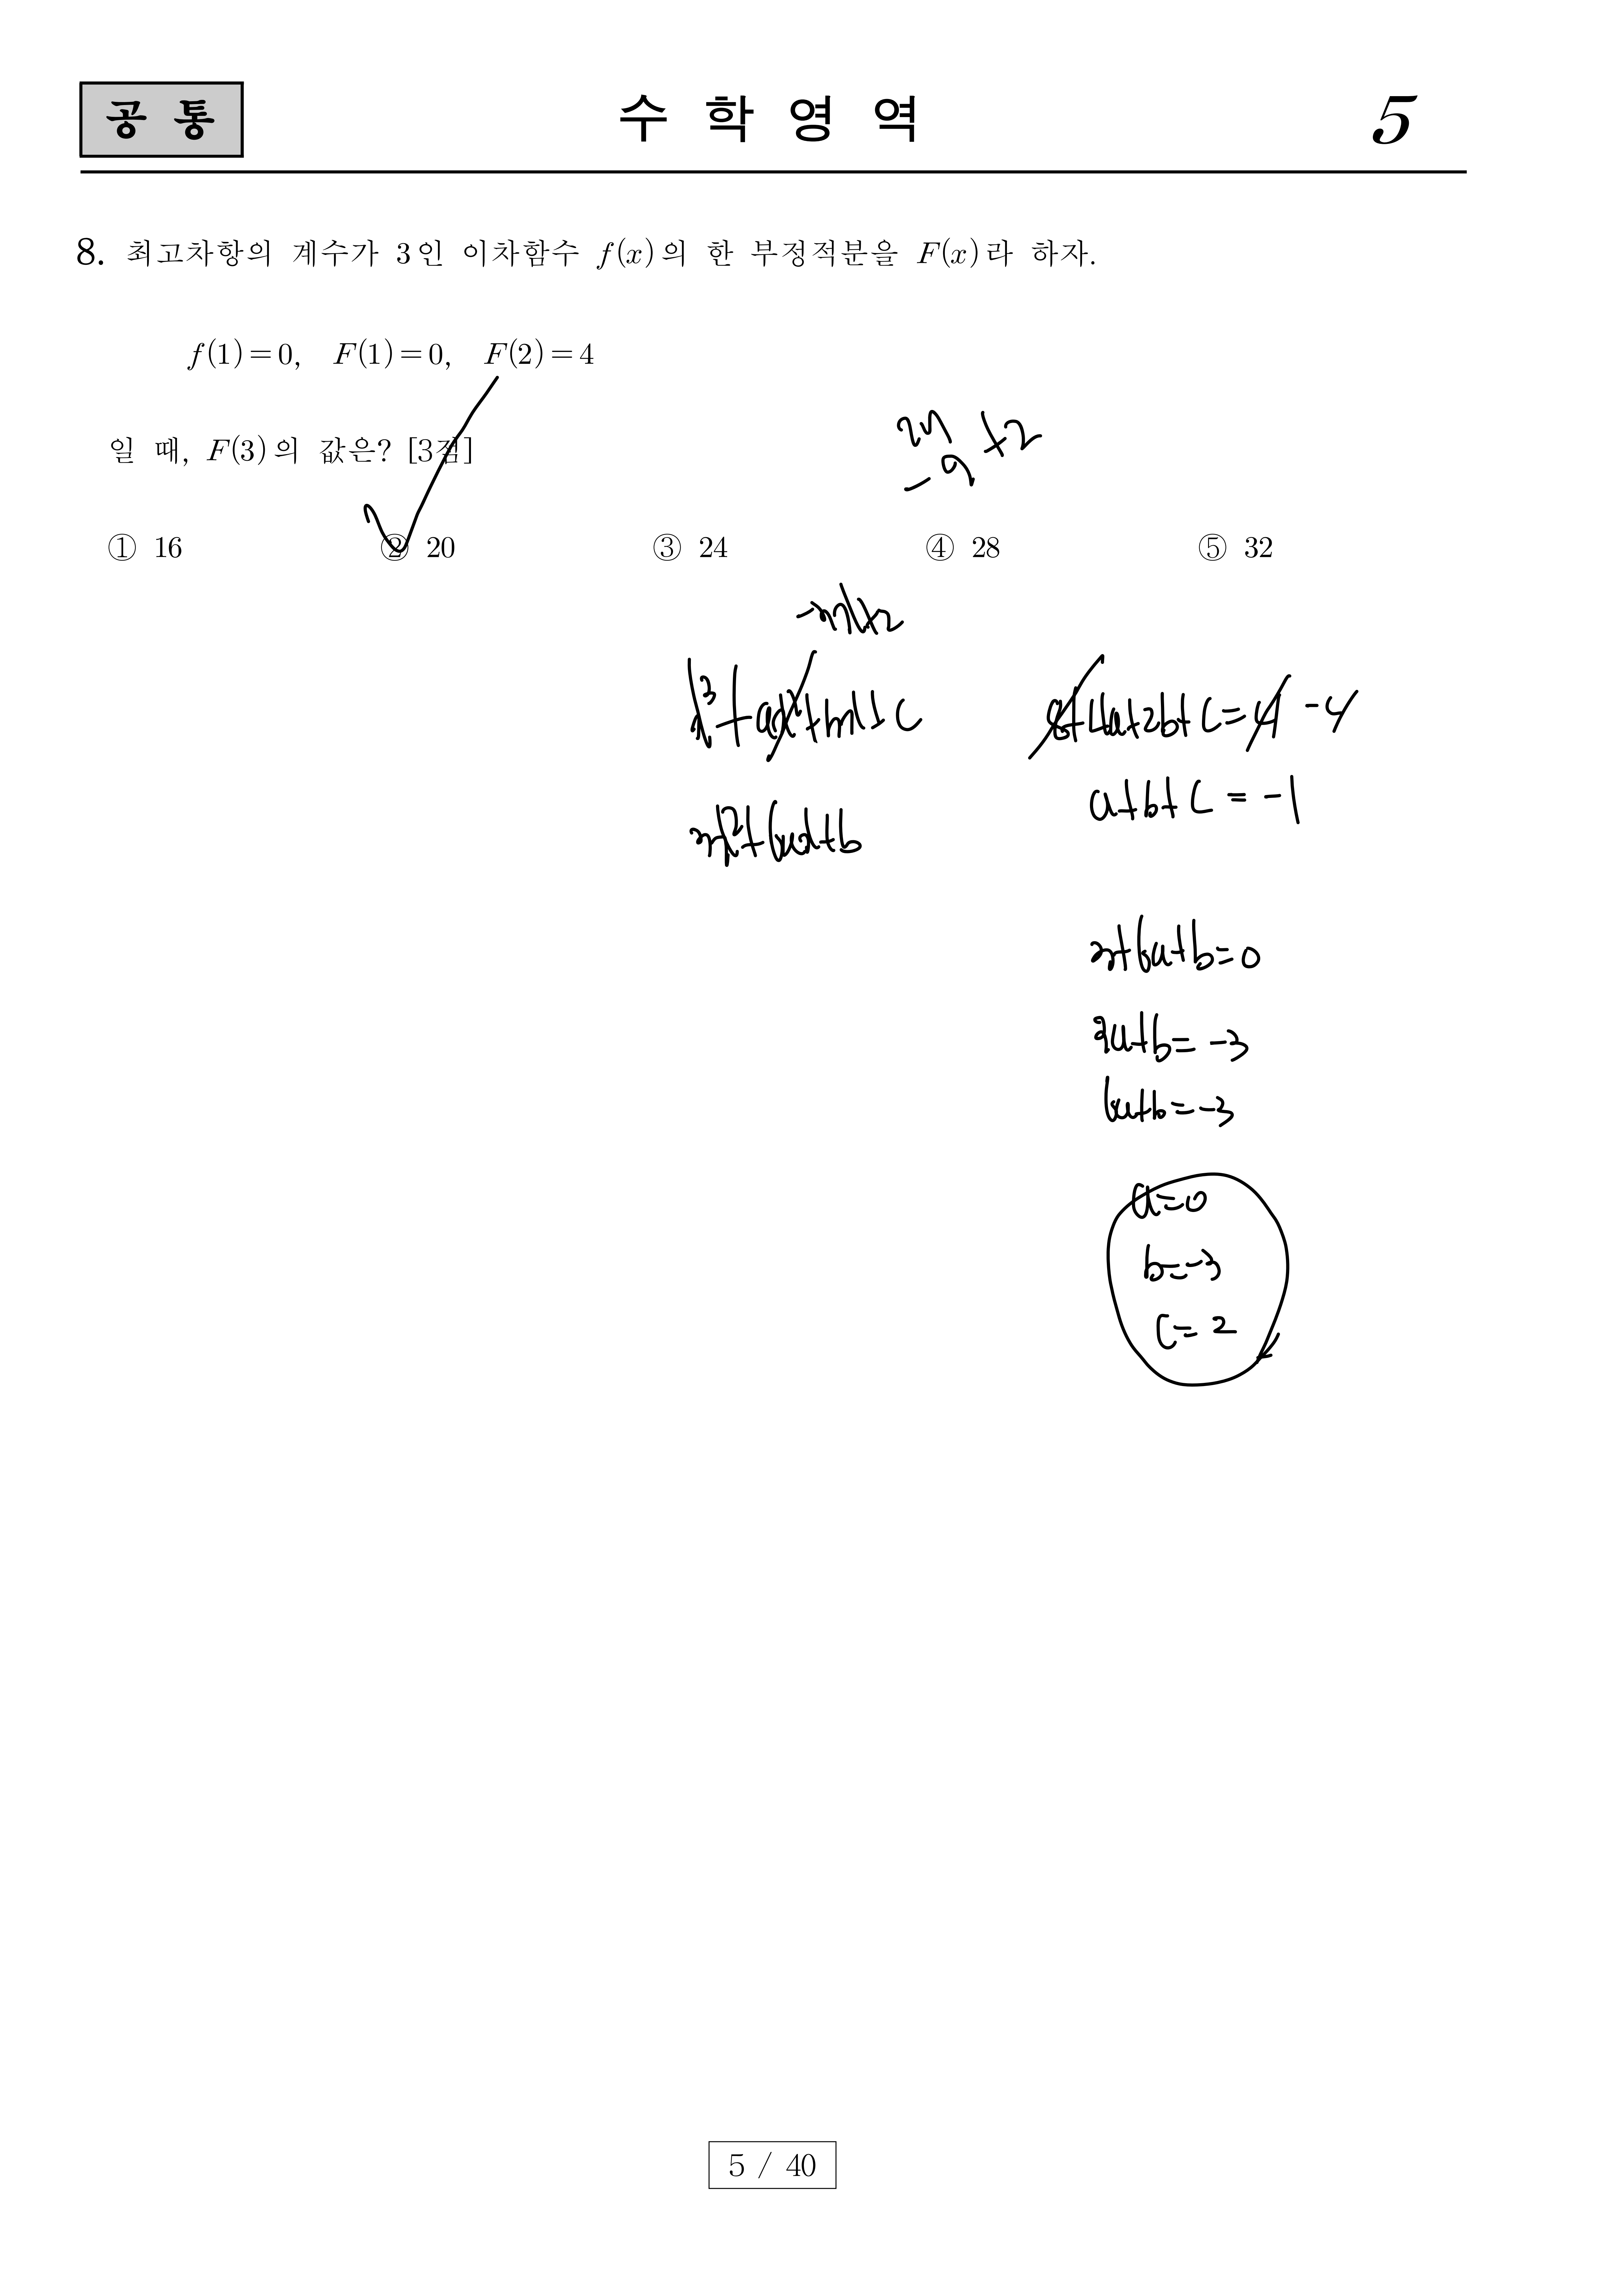 공 통
수 학 영 역
5
8. 최고차항의 계수가 3인 이차함수 f(x)의 한 부정적분을 F(x)라 하자.
f(1)=0, F(1)=0, F(2)=4
일 때, F(3)의 값은? [3점]
① 16 ② 20 ③ 24 ④ 28 ⑤ 32
-9 +2
+c
8+4a+2b+c=4 -4
a+b+c = -1
3a+b=-3
a=0
b=-3
c=2
5 / 40